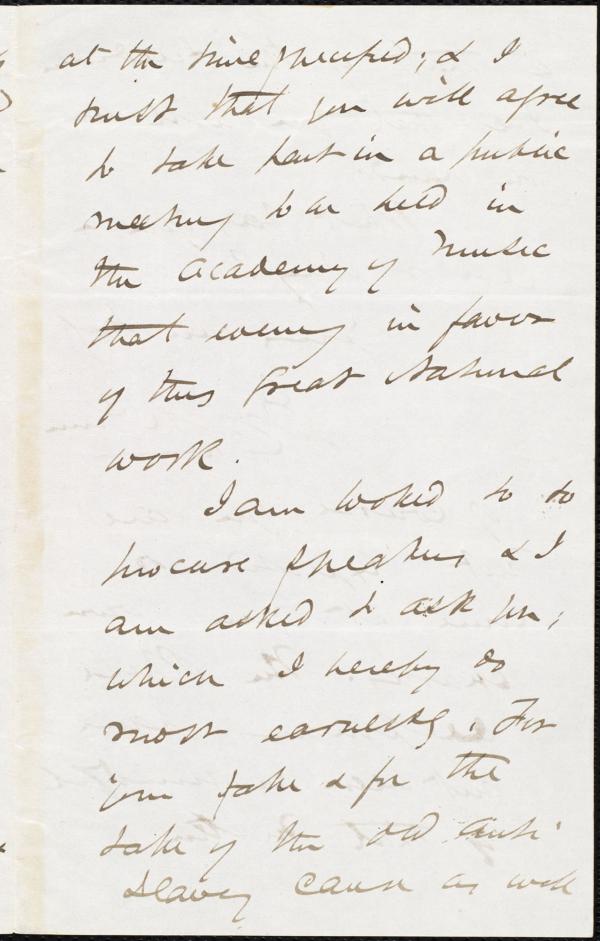 at the time specified; & I
trust that you will agree
to take part in a public
meeting to be held in
the Academy of Music
that evening in favor
of this Great National
work.
I am looked to to
procure speakers & I
am asked to ask you,
which I hereby do
most earnestly. For
your sake & for the
sake of the old anti
slavery cause as well